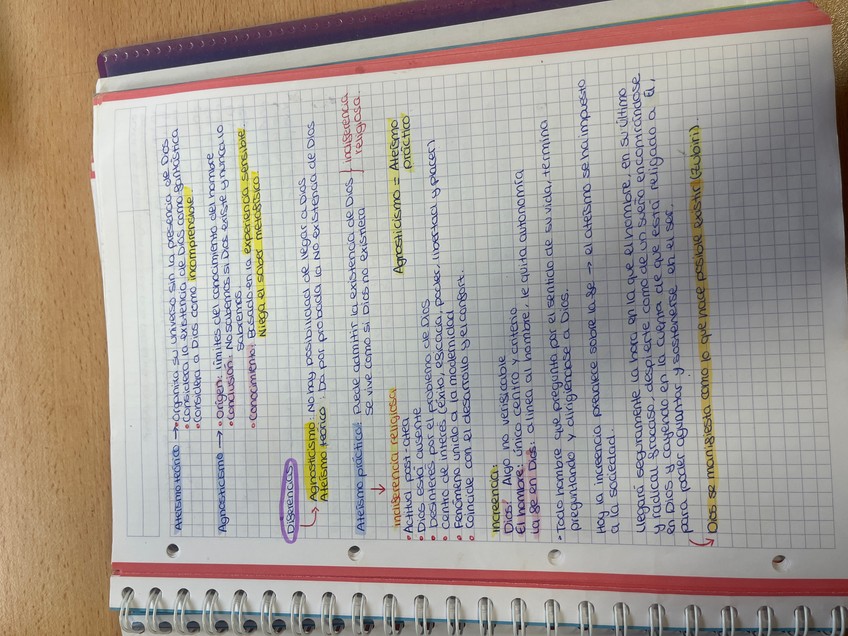 Ateísmo teórico → • Organiza su universo sin la presencia de Dios
• Considera la existencia de Dios como fantástica
• Considera a Dios como incomprensible.
Agnosticismo → • Origen: límites del conocimiento del hombre
• Conclusión: No sabemos si Dios existe y nunca lo
sabremos.
• Conocimiento: Basado en la experiencia sensible.
Niega el saber metafísico.
Diferencias
Agnosticismo: No hay posibilidad de llegar a Dios
Ateísmo teórico: Da por probada la NO existencia de Dios
Ateísmo práctico: Puede admitir la existencia de Dios } indiferencia
se vive como si Dios no existiera religiosa.
↓
Indiferencia religiosa Agnosticismo = Ateísmo
práctico
• Actitud post-atea
• Dios está ausente
• Desinterés por el problema de Dios
• Centro de interés (éxito, eficacia, poder, libertad y placer)
• Fenómeno unido a la modernidad
• Coincide con el desarrollo y el confort.
Increencia:
Dios: Algo no verificable
El hombre: único centro y criterio
La fe en Dios: aliena al hombre, le quita autonomía
• Todo hombre que pregunta por el sentido de su vida, termina
preguntando y dirigiéndose a Dios.
Hoy la increencia prevalece sobre la fe → el ateísmo se ha impuesto
a la sociedad.
Llegará seguramente la hora en la que el hombre, en su último
y radical fracaso, despierte como de un sueño encontrándose
en Dios y cayendo en la cuenta de que está religado a Él,
para poder aguantar y sostenerse en el ser.
Dios se manifiesta como lo que hace posible existir (Zubiri).